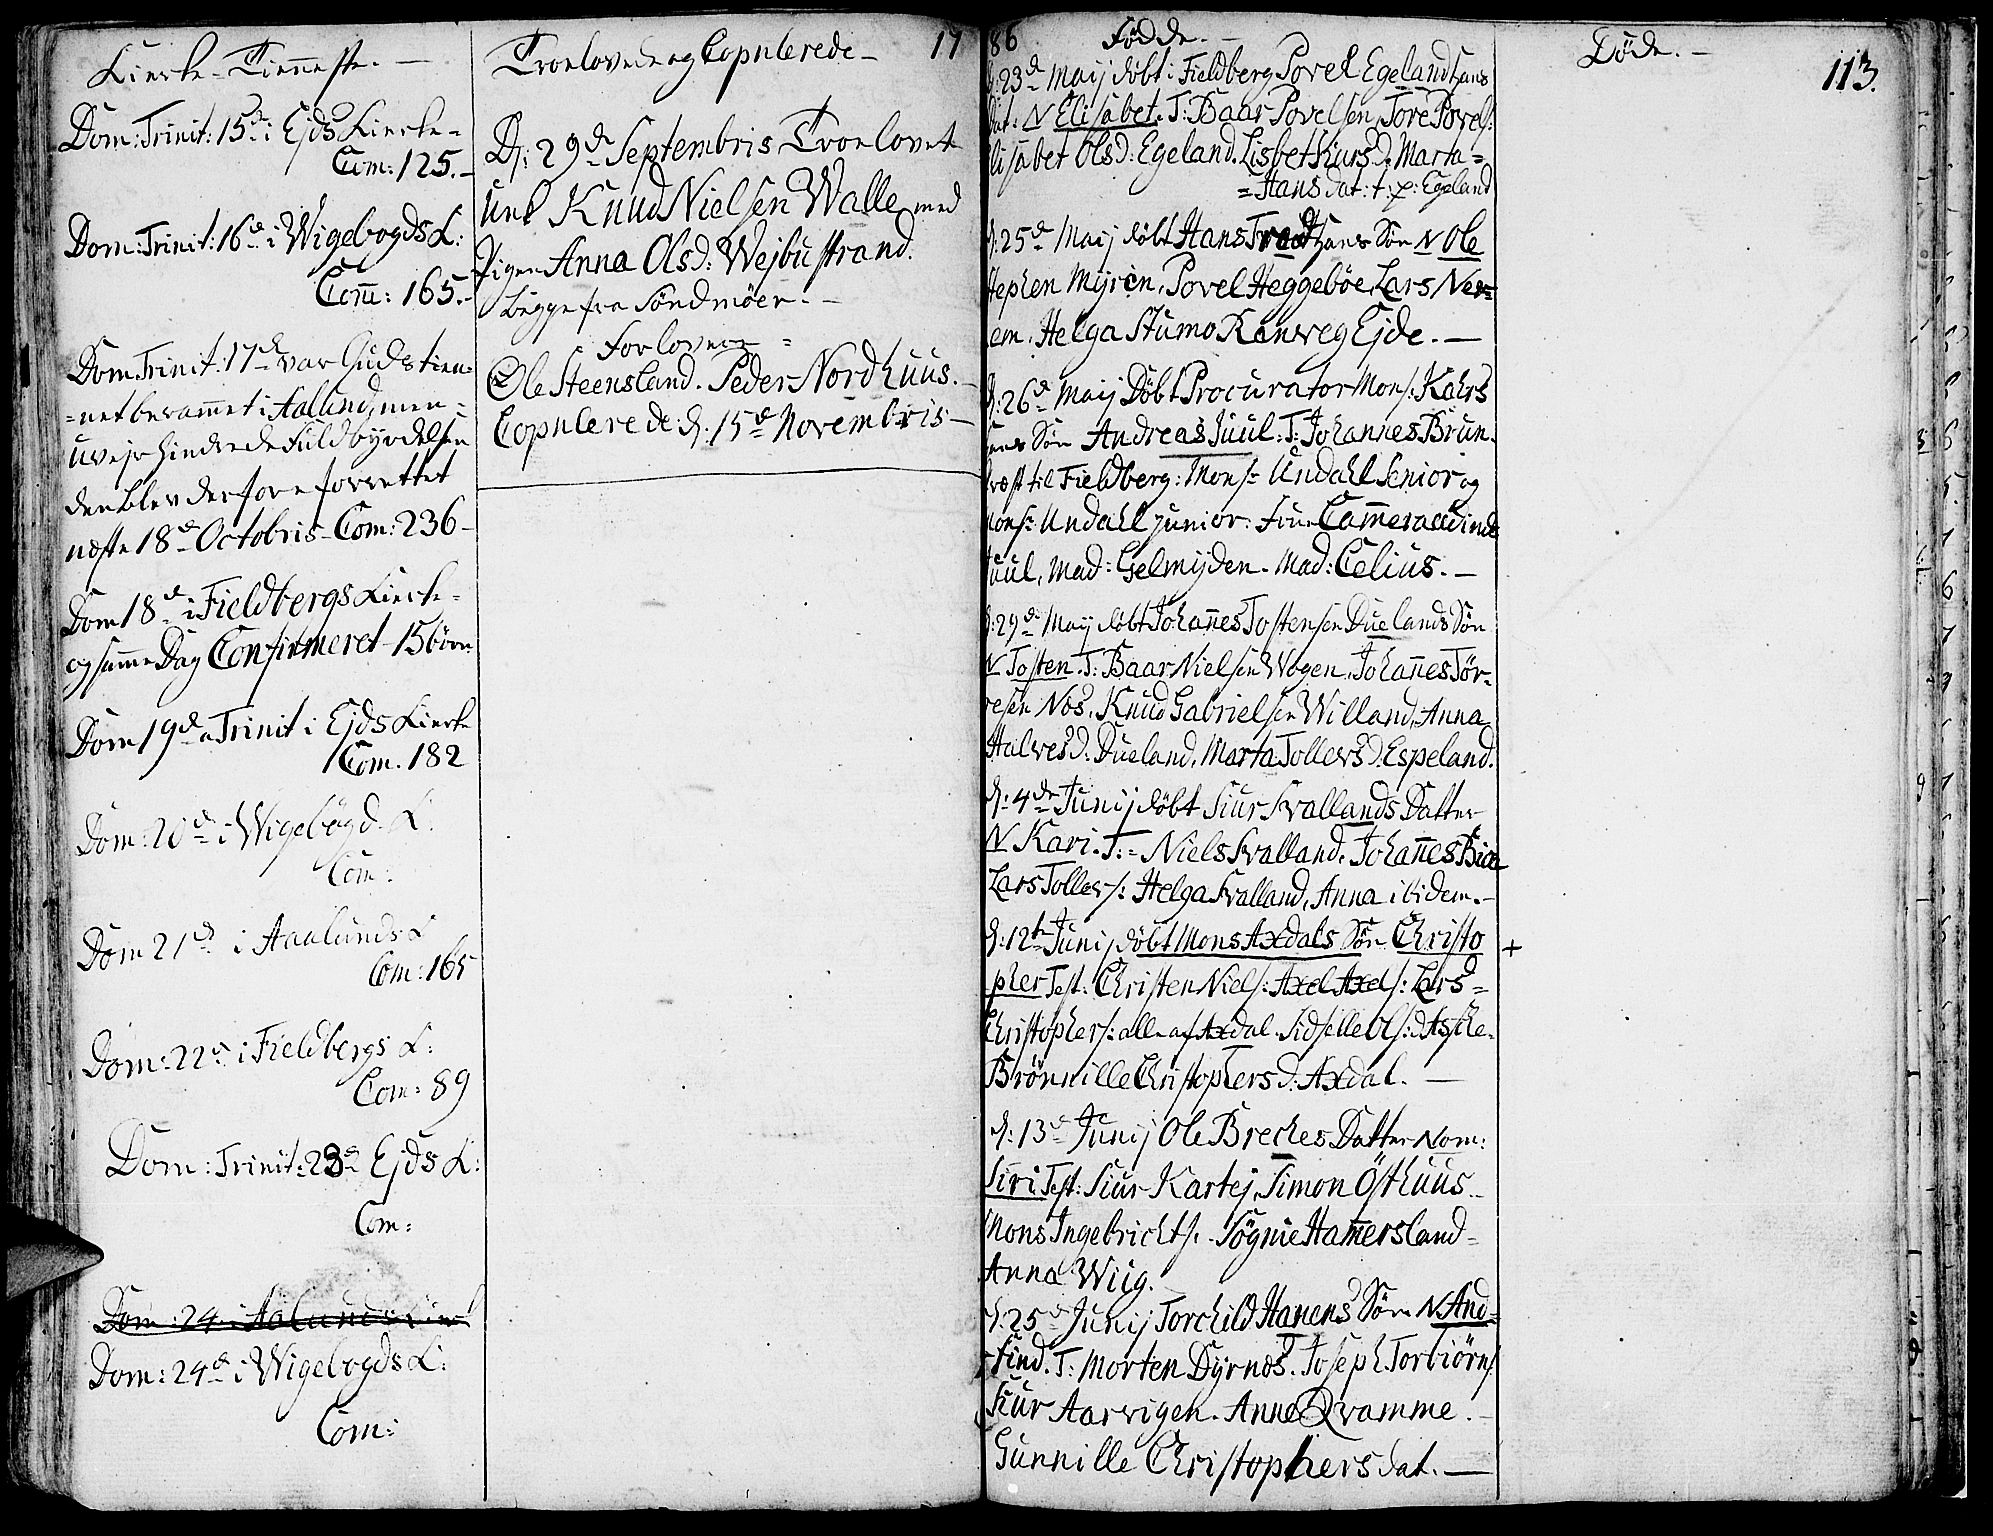 Kierke-Tienneste. —
Dom: Trinit: 15de i Ejds Kierke-
Com: 125.-
Dom: Trinit: 16de i Wigebogds K:
Com: 165.-
Dom Trinit: 17de var Guds tien-
=net berammet i Aalund, men
uvejr hindrede Fuldbyrdelsen
den blev derfore forrettet
næste 18de Octobris - Com: 236-
Dom 18de i Fieldbergs Kierke-
og samme Dag Confirmeret 15 börn
Dom 19de a Trinit i Ejds Kierke
Com. 182
Dom: 20de i Wigebogd. K:
Com:
Dom 21de i Aaalunds K
Com: 165
Dom: 22de i Fieldbergs K:
Com: 89
Dom: Trinit: 23de Ejds K:
Com:
Dom: 24 i Aalunds Kierk
Dom: 24de i Wigebogds K:
Com:
Troelovede og Copulerede — 17
D: 29de Septembris Troelovet
Unk Knud Nielsen Walle med
Pigen Anna Olsd: Wejbustrand.
begge fra Söndmöer. —
Forlovere =
Ole Steensland. Peder Nordhuus.
Copulerede d. 15de Novembris —
86 Födde. —
d: 23de Maij döbt i Fieldberg Povel Egeland hans
dat: N Elisabet. T: Baar Povelsen, Tore Povels:
Elisabet Olsd: Egeland. Lisbet Siursd. Marta =
= Hansdat: t: p: Egeland
d: 25de Maij döbt Hans hans Sön N Ole
Stephen Myren, Povel Heggeböe, Lars Ner=
em. Helga Stumo Ranveg Ejde. —
d: 26de Maij Döbt Procurator Mons: Kahrs
hans Sön Andreas Juul: T: Johannes Brun
Præst til Fieldberg: Mons: Undahl Senior og
Mons: Undahl junior. Frue Cammeraadinde
Juul, Mad: Gelmyden. Mad: Celius. —
d: 29de Maij döbt Johannes Tostensen Duelands Sön
N Tosten. T: Baar Nielsen Wogen, Johannes Tör-
resen Nos, Knud Gabrielsen Willand, Anna
Halvesd: Dueland, Marta Tollevsd. Espeland.
d: 4de Junij döbt Siur Svallands Datter
N Kari. T: = Niels Svalland. Johannes Bioe
Lars Tollevs: Helga Svalland, Anna ibidem. -
d: 12te Junij döbt Mons Axdals Sön Christo +
pher Test: Christen Niels: Axel Axels: Lars =
Christophers: alle af Axdal. Sidselle Ols: d. Asche-
Brönnille Christophersd: Axdal. —
d: 13de Junij Ole Breches Datter Nom:
Siri Test: Siur Kartej, Simon Östhuus.
Mons Ingebrichts. Sögnie Hammersland-
Anna Wiig.
d: 25de Junij Torchild Hanens Sön N And-
find. T: Morten Dyrnes. Joseph Torbiörns
Siur Aarvigen. Anna Qvamme. -
Gunnille Christophersdat. —
Döde. —
113.